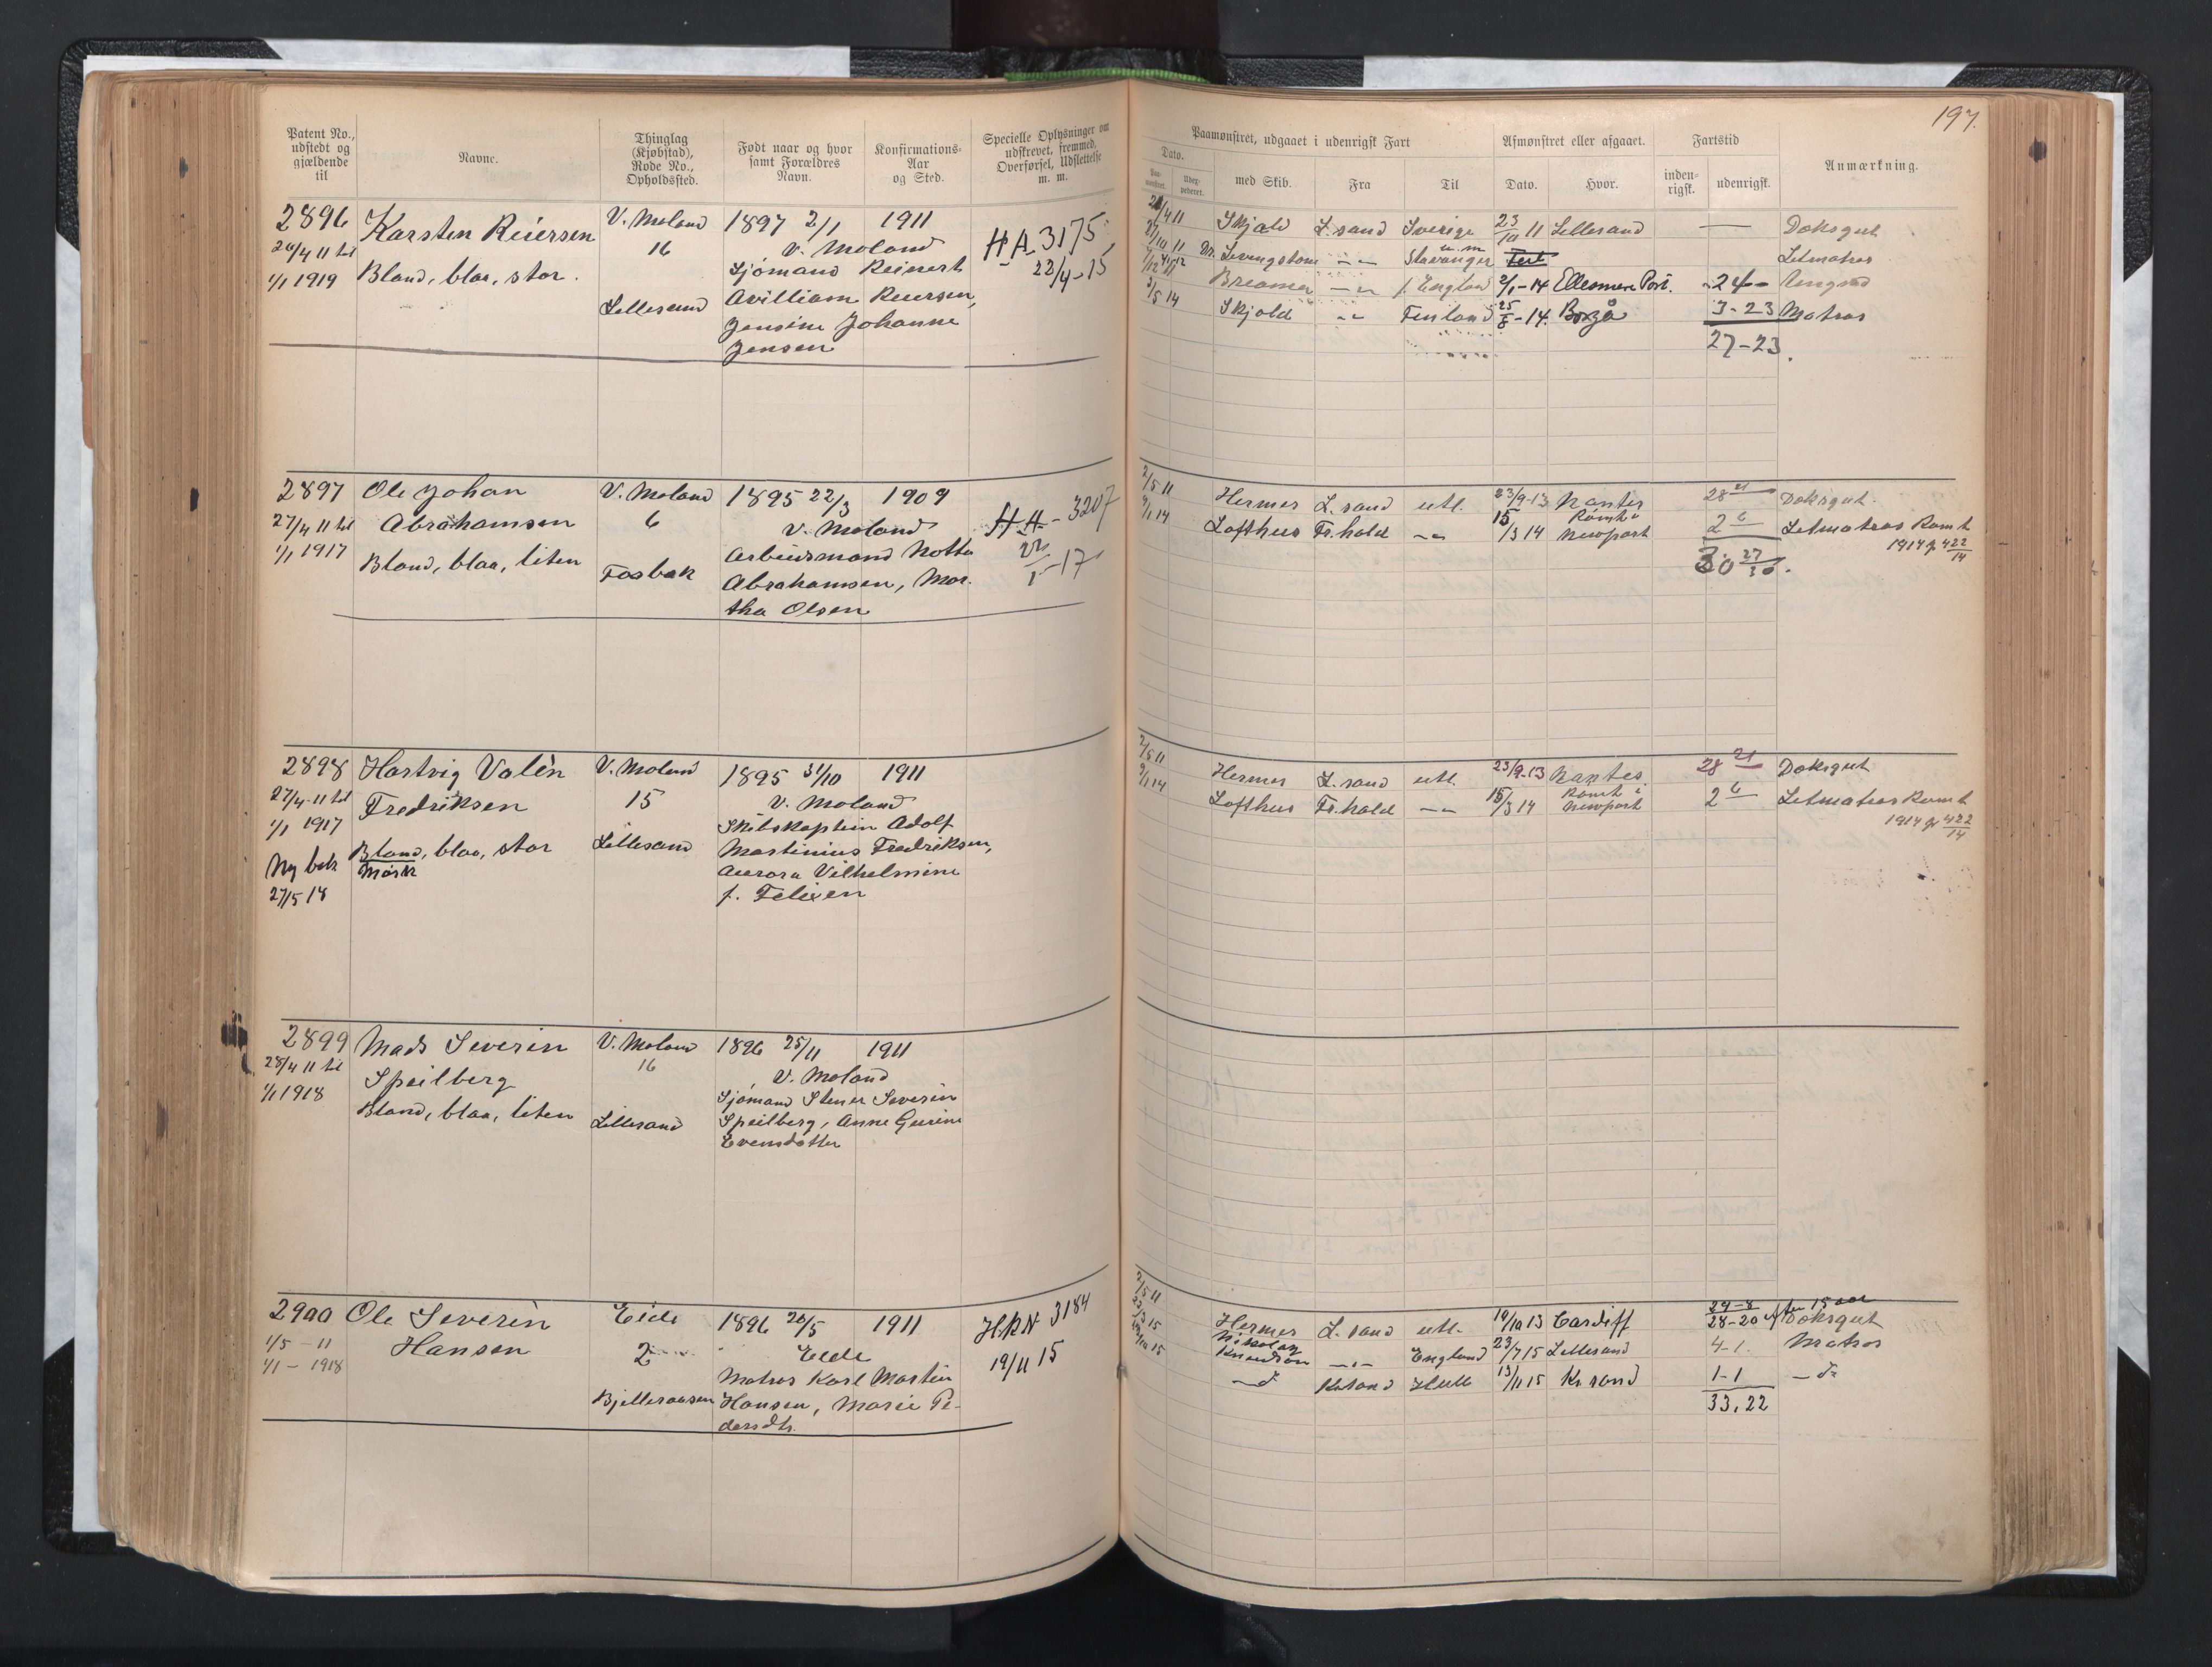 197.
Patent No., udstedt og gjældende til
Navne.
Thinglag (Kjøbstad), Rode No., Opholdssted.
Født naar og hvor samt Forældres Navn.
Konfirmations-Aar og Sted.
Specielle Oplysninger om udskrevet, fremmed, Overførsel, Udslettelse m. m.
Paamønstret, udgaaet i udenrigsk Fart
Afmønstret eller afgaaet.
Fartstid
Anmærkning.
Dato.
Paa-mønstret.
Udex-pederet.
med Skib.
Fra
Til
Dato.
Hvor.
inden-rigsk.
udenrigsk.
2896 Karsten Reiersen V. Moland 1897 2/1 1911
26/4 11 til 16 V. Moland H A 3175
1/1 1919 Blond, blaa, stor. Sjømand Reinert 22/4-15
Lillesand Avilliam Reiersen,
Jensine Johanne
Jensen
Skjold L. sand Sverige 23/10 11 Lillesand — Doksgut
Stavanger Letmatros
Breamer -"- England 2/1-14 Ellesmere Port. 24- Ungmd
3/5 14 Skjold -"- Finland 25/8-14. Borgå 3-23 Matros
27-23.
2897 Ole Johan V. Moland 1895 22/3 1909
27/4 11 til Abrahamsen 6 V. Moland H.A - 3207
1/1 1917 Blond, blaa, liten Arbeidsmand Notto
Fosbæk Abrahamsen, Mar-
tha Olsen
2/5 11 Hermes L. sand utl. 23/9-13 Nantes 28 21 Doksgut
9/1 14 Lofthus Fr.hald -"- 15/3 14 Rømt i Newport 2 6 Letmatros Rømt
1914 422/14
30 27/30.
2898 Hartvig Valèn V. Moland 1895 31/10 1911
27/4-11 til Fredriksen 15 V. Moland
1/1 1917 Skibskaptein Adolf
Blond, blaa, stor Lillesand Martinius Fredriksen,
Ny bok Mørk Aurora Vilhelmine
27/5 18 f. Felixen
2/5 11 Hermes L. sand utl. 23/9-13 Nantes 28 21 Doksgut
9/1 14 Lofthus Fr.hald -"- 15/3 14 Rømt i Newport 2 6 Letmatros Rømt
1914 422/14
2899 Mads Severin V. Moland 1896 25/11 1911
28/4 11 til Speilberg 16 V. Moland
1/1 1918 Blond, blaa, liten Sjømand Stener Severin
Lillesand Speilberg, Anne Gurine
Evensdatter
2900 Ole Severin Eide 1896 20/5 1911 H.R.N 3184
1/5-11 Hansen 2 Eide 19/11 15
1/1-1918 Matros Karl Martin
Bjelleraasen Hansen, Marie Pe-
dersdtr.
29-8 After 15 aar
2/5 11 Hermes L. sand utl. 19/10 13 Cardiff 28-20 Doksgut
Nikolay
Knudson -"- England 23/7 15 Lillesand 4-1. Matros
-d Kr.sand Hull 13/11 15 Kr. sand 1-1 -d-
33.22